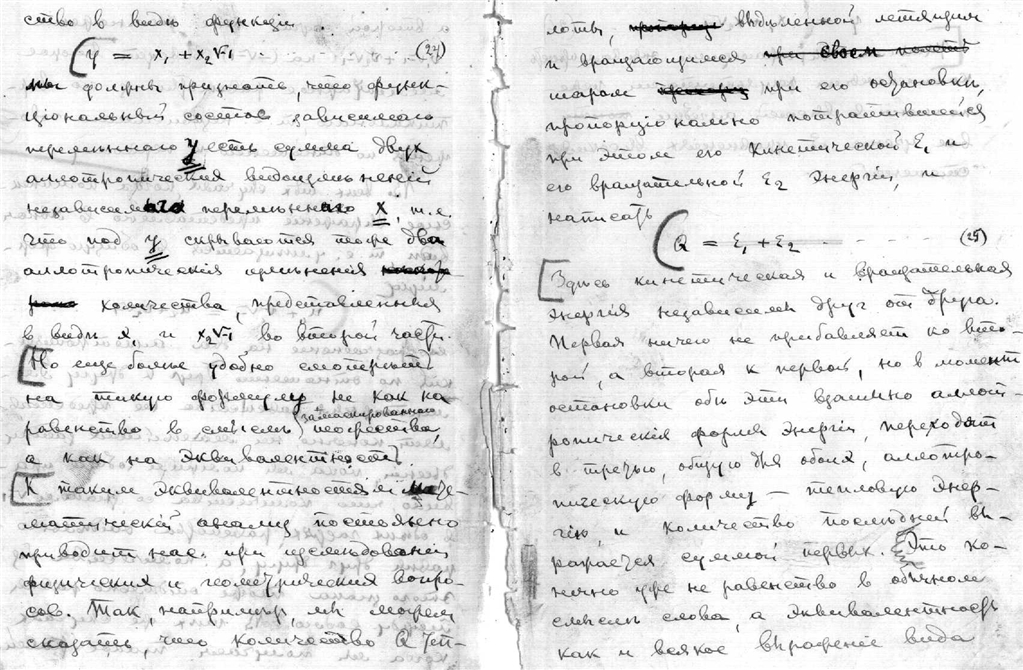 ство в видѣ функціи
y = x₁ + x₂√-1 (27)
мы должны признать, что функ-
ціональный состав зависимаго
перемѣннаго y есть сумма двух
аллотропических видоизмѣненій
независимаго перемѣннаго x, т.е.
что под y скрываются тоже два
аллотропическія
количества, представленныя
в видѣ x₁ и x₂√-1 во второй части.
Но еще болѣе удобно смотрѣть
на такую формулу не как на
равенство в смыслѣ замаскированнаго тождества,
а как на эквивалентность.
К таким эквивалентностям мате-
матическій анализ постоянно
приводит нас при изслѣдованіи
физических и геометрических вопро-
сов. Так, напримѣр, мы можем
сказать, что количество Q теп-
лоты, выдѣленной летящим
и вращающимся при своем полетѣ
шаром при его остановкѣ,
пропорціонально потратившейся
при этом его кинетической ℰ₁ и
его вращательной ℰ₂ энергіи, и
написать
Q = ℰ₁ + ℰ₂ (28)
Здѣсь кинетическая и вращательная
энергія независимы друг от друга.
Первая ничего не прибавляет ко вто-
рой, а вторая к первой, но в момент
остановки обѣ эти взаимно аллот-
ропическія формы энергіи, переходят
в третью, общую для обоих, аллотро-
пическую форму — тепловую энер-
гію, и количество послѣдней вы-
ражается суммой первых. Это ко-
нечно уже не равенство в обычном
смыслѣ слова, а эквивалентность
как и всякое выраженіе вида